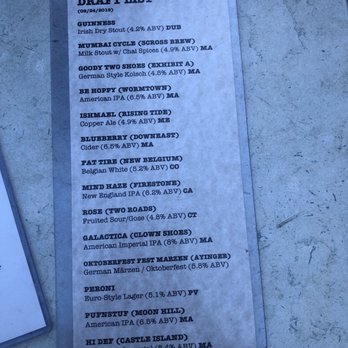 DRAFT LIST
(09/24/2019)
GUINNESS
Irish Dry Stout (4.2% ABV) DUB
MUMBAI CYCLE (5CROSS BREW)
Milk Stout w/ Chai Spices (4.9% ABV) MA
GOODY TWO SHOES (EXHIBIT A)
German Style Kolsch (4.5% ABV) MA
BE HOPPY (WORMTOWN)
American IPA (6.5% ABV) MA
ISHMAEL (RISING TIDE)
Copper Ale (4.9% ABV) ME
BLUEBERRY (DOWNEAST)
Cider (5.5% ABV) MA
FAT TIRE (NEW BELGIUM)
Belgian White (5.2% ABV) CO
MIND HAZE (FIRESTONE)
New England IPA (6.2% ABV) CA
ROSE (TWO ROADS)
Fruited Sour/Gose (4.8% ABV) CT
GALACTICA (CLOWN SHOES)
American Imperial IPA (8% ABV) MA
OKTOBERFEST FEST MARZEN (AYINGER)
German Märzen / Oktoberfest (5.8% ABV)
PERONI
Euro-Style Lager (5.1% ABV) PV
PUFNSTUF (MOON HILL)
American IPA (6.5% ABV) MA
HI DEF (CASTLE ISLAND)
ABV) MA